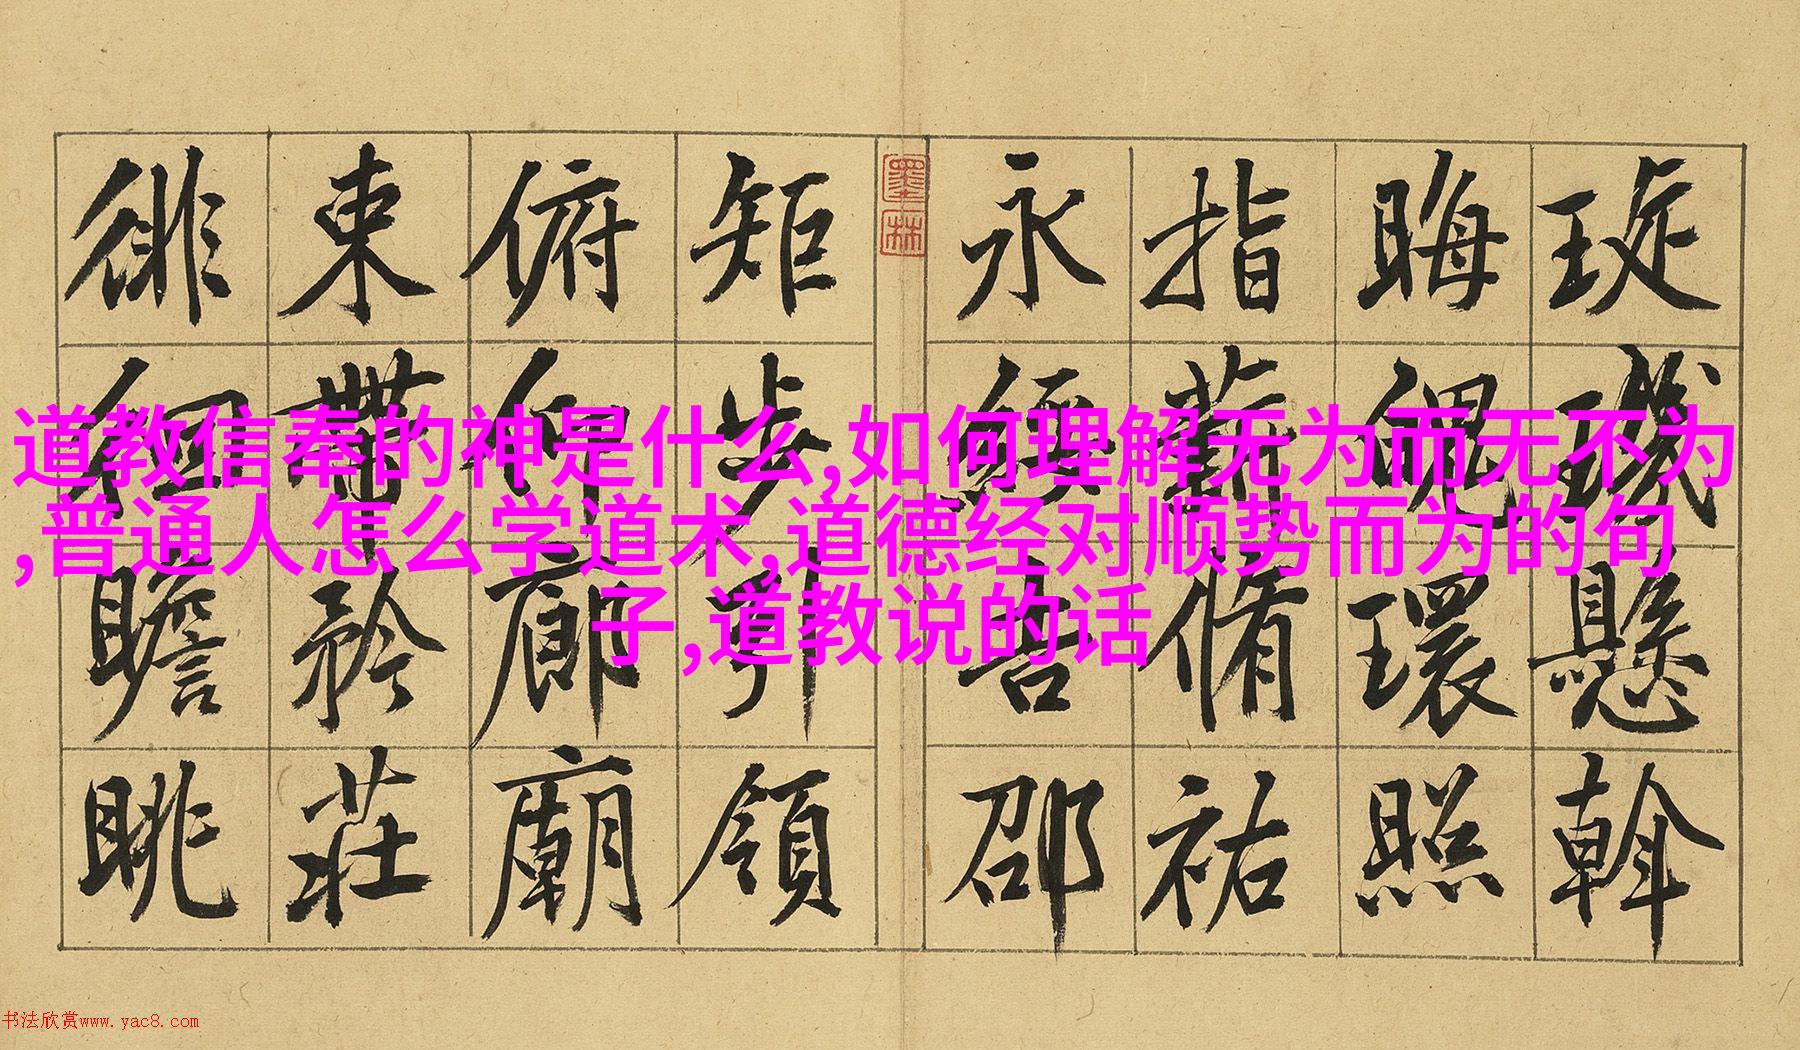 琁璣懸斡
晦魄環照
指薪脩祐
永綏吉邵
墨林
矩步引領
俯仰廊廟
束帶矜莊
徘徊瞻眺
道教信奉的神是什么,如何理解无为而无不为
,普通人怎么学道术,道德经对顺势而为的句
子,道教说的话
书法欣赏www.yac8.com